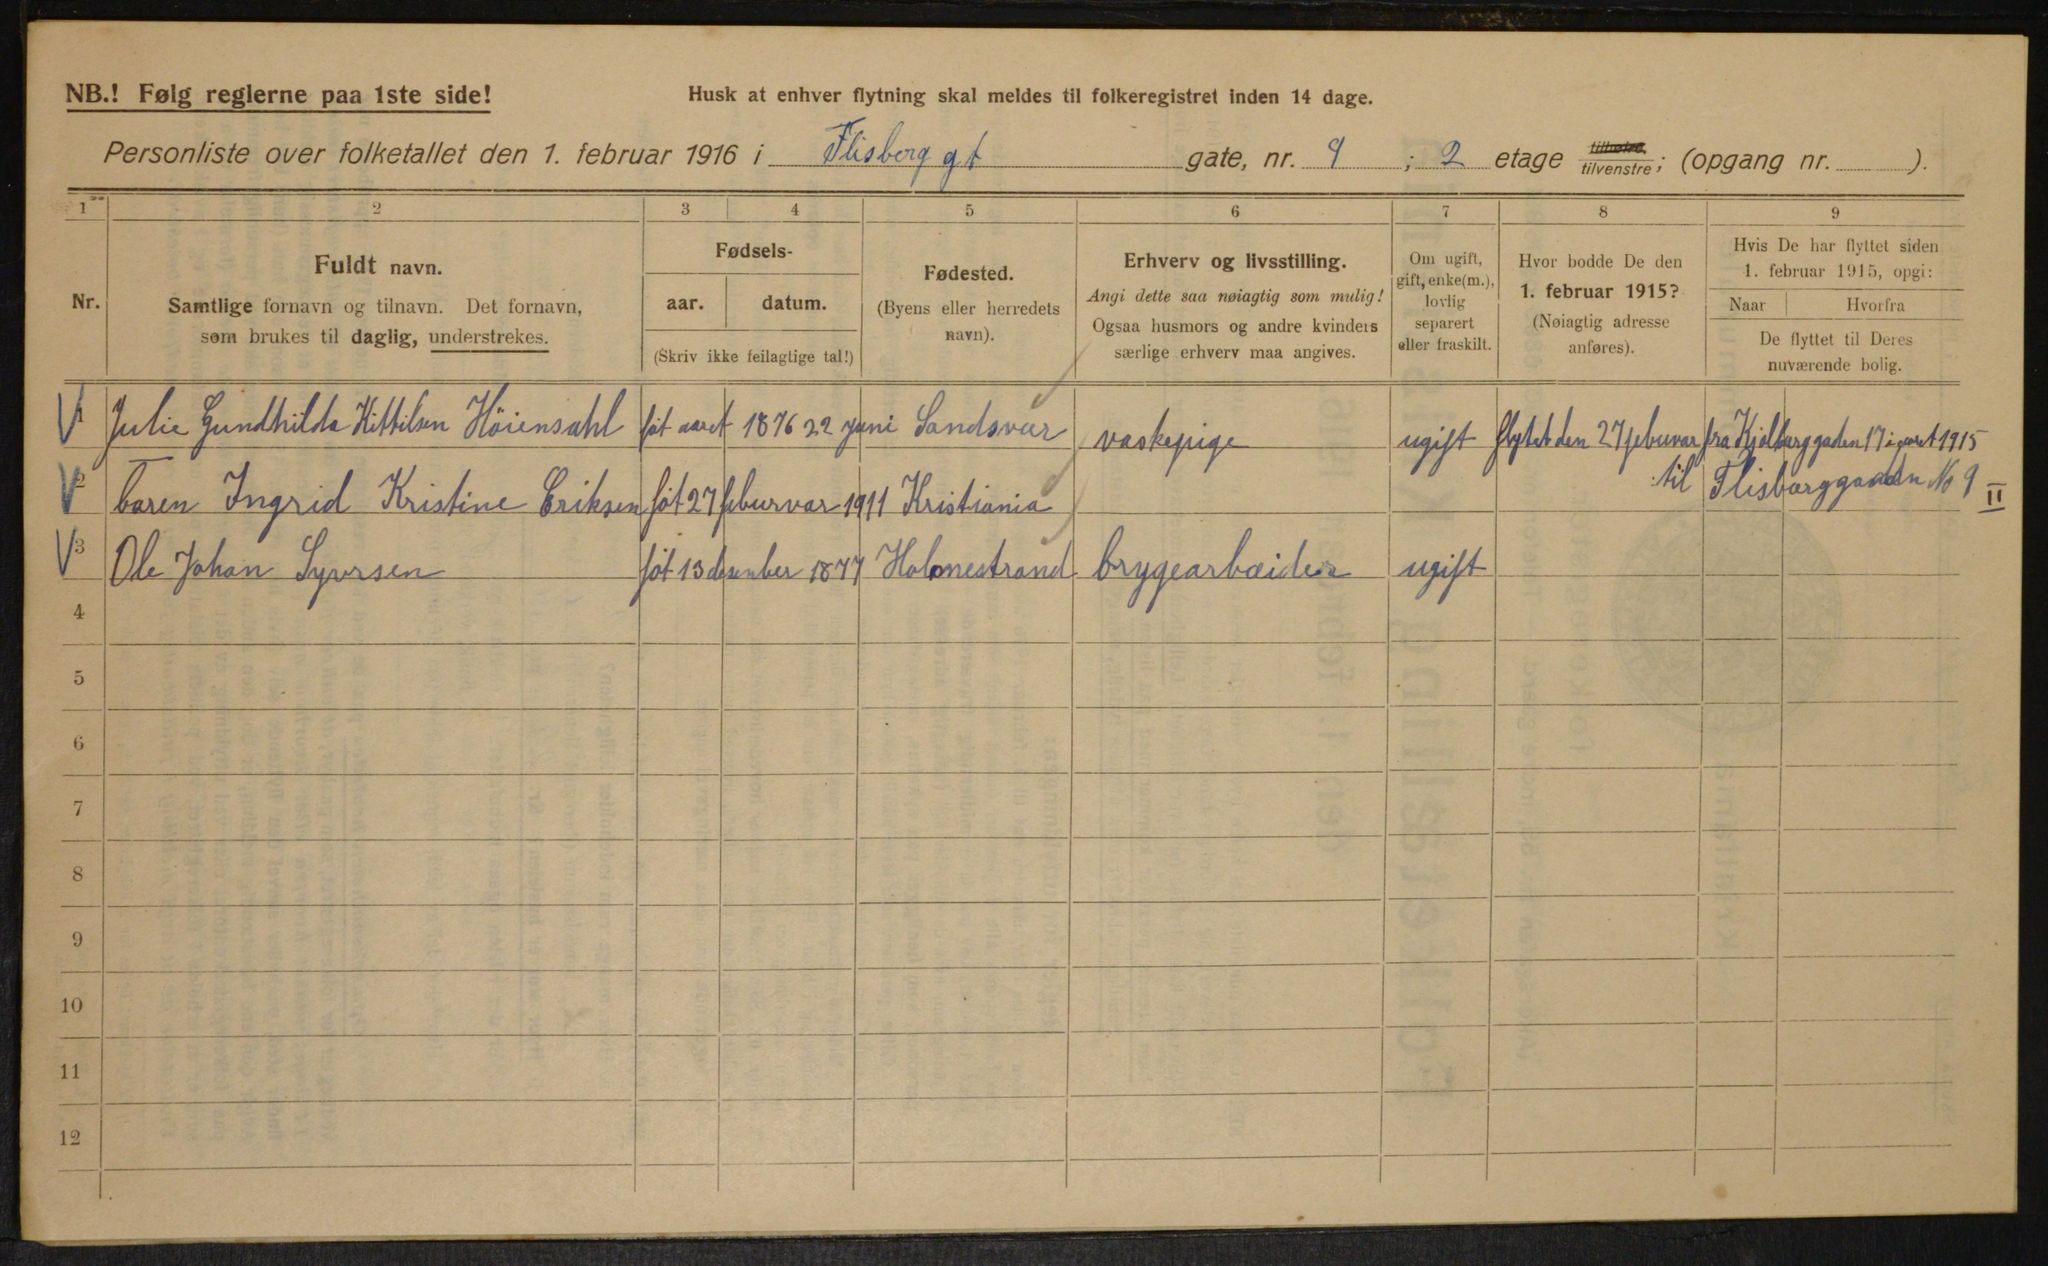 NB.! Følg reglerne paa 1ste side!
Husk at enhver flytning skal meldes til folkeregistret inden 14 dage.
Personliste over folketallet den 1. februar 1916 i Flisberg gt gate, nr. 9 ; 2 etage tilhøire, tilvenstre; (opgang nr. ).
1 2 3 4 5 6 7 8 9
Nr.
Fuldt navn.
Samtlige fornavn og tilnavn. Det fornavn,
som brukes til daglig, understrekes.
Fødsels-
aar. datum.
(Skriv ikke feilagtige tal!)
Fødested.
(Byens eller herredets
navn).
Erhverv og livsstilling.
Angi dette saa nøiagtig som mulig!
Ogsaa husmors og andre kvinders
særlige erhverv maa angives.
Om ugift,
gift, enke(m.),
lovlig
separert
eller fraskilt.
Hvor bodde De den
1. februar 1915?
(Nøiagtig adresse
anføres).
Hvis De har flyttet siden
1. februar 1915, opgi:
Naar Hvorfra
De flyttet til Deres
nuværende bolig.
1 Julie Gundhilda Kittilsen Höiensahl föt aaret 1876 22 juni Sandsvær vaskepige ugift flytet den 27 febuvar fra Kjölberggaden 17 i aaret 1915
til Flisbarggaden No 9 II
2 baren Ingrid Kristine Eriksen föt 27 feburvar 1911 Kristiania
3 Ole Johan Syversen föt 13 desember 1877 Holmestrand brygearbæider ugift
4
5
6
7
8
9
10
11
12